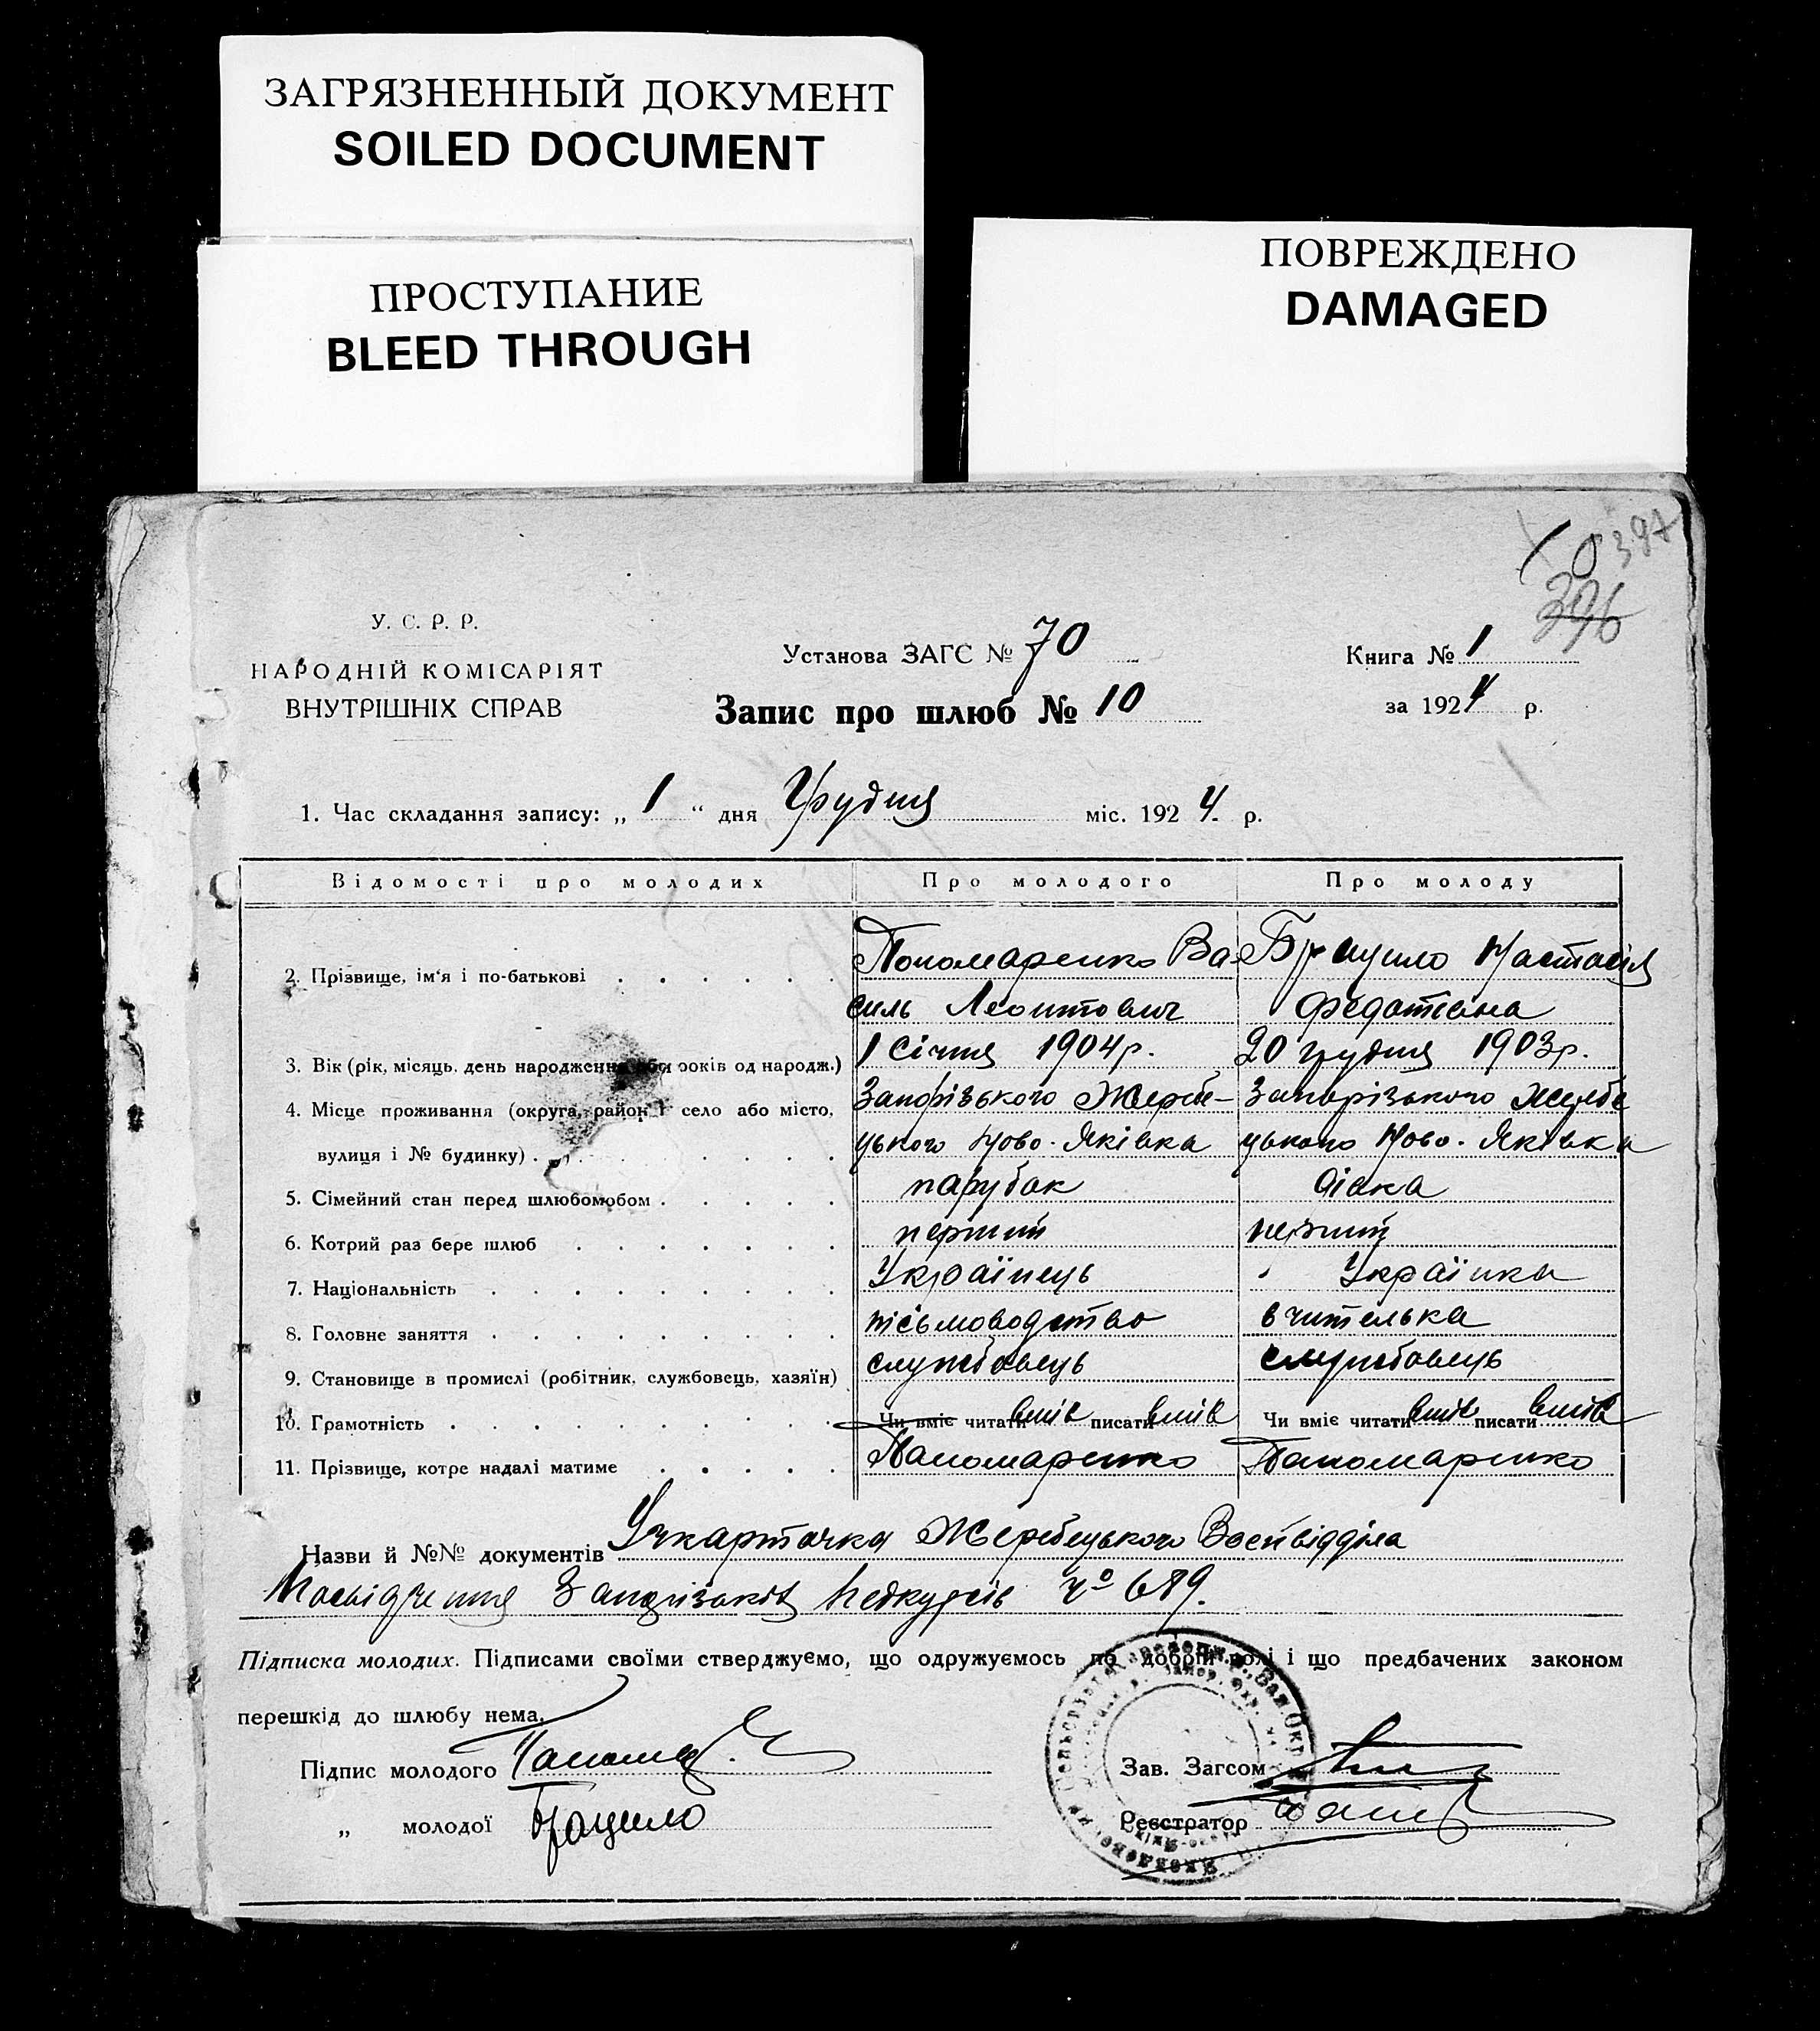 ЗАГРЯЗНЕННЫЙ ДОКУМЕНТ
SOILED DOCUMENT
ПРОСТУПАНИЕ
BLEED THROUGH
ПОВРЕЖДЕНО
DAMAGED
397
396
У. С. Р. Р.
НАРОДНІЙ КОМІСАРІЯТ
ВНУТРІШНІХ СПРАВ
Установа ЗАГС № 70
Запис про шлюб № 10
Книга № 1
за 1924 р.
1. Час складання запису: „ 1 “ дня Грудня міс. 1924. р.
Відомості про молодих Про молодого Про молоду
2. Прізвище, ім‘я і по-батькові Пономаренко Ва- Настасія
силь Леонтович Федотівна
3. Вік (рік, місяць, день народження або років од народж.) 1 Січня 1904 р. 20 грудня 1903 р.
4. Місце проживання (округа, район і село або місто, Запорізького Жереб- Запорізького Жеребе
вулиця і № будинку) цького Ново-Яківка цького Ново-Яківка
5. Сімейний стан перед шлюбомобом парубок дівка
6. Котрий раз бере шлюб перший перший
7. Національність Українець Українка
8. Головне заняття пісьмоводство вчителька
9. Становище в промислі (робітник, службовець, хазяїн) службовець службовець
10. Грамотність Чи вміє читати вмів писати вмів Чи вміє читати вмів писати вмів
11. Прізвище, котре надалі матиме Пономаренко Пономаренко
Назви й №№ документів Учкарточка Жеребецького Воєнвідділа
Посвідчення Запорізьких Педкурсів № 689.
Підписка молодих. Підписами своїми стверджуємо, що одружуємось по добрій волі і що предбачених законом
перешкід до шлюбу нема.
Підпис молодого
Зав. Загсом
„ молодої
Реєстратор